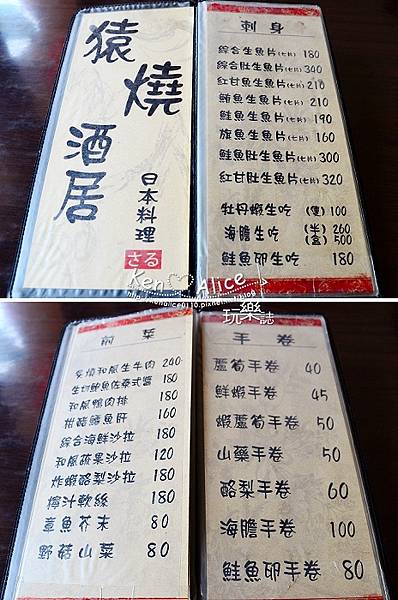 猿燒酒居
日本料理
さる
刺身
綜合生魚片(七片) 180
綜合肚生魚片(七片) 300
紅甘魚生魚片(七片) 210
鮪魚生魚片(七片) 210
鮭魚生魚片(七片) 190
旗魚生魚片(七片) 160
鮭魚肚生魚片(七片) 300
紅甘肚生魚片(七片) 320
牡丹蝦生吃 (隻) 100
海膽生吃 (半) 260
(盒) 500
鮭魚卵生吃 180
Ken♡Alice
玩樂誌
前菜
炙燒和風生牛肉 240
生切鮑魚佐泰式醬 180
和風鴨肉排 180
柑桔鱈魚肝 160
綜合海鮮沙拉 180
和風蔬果沙拉 120
炸蝦酪梨沙拉 180
檸汁軟絲 180
章魚芥末 80
野菇山菜 80
手卷
蘆筍手卷 40
鮮蝦手卷 45
蝦蘆筍手卷 50
山藥手卷 50
酪梨手卷 60
海膽手卷 100
鮭魚卵手卷 80